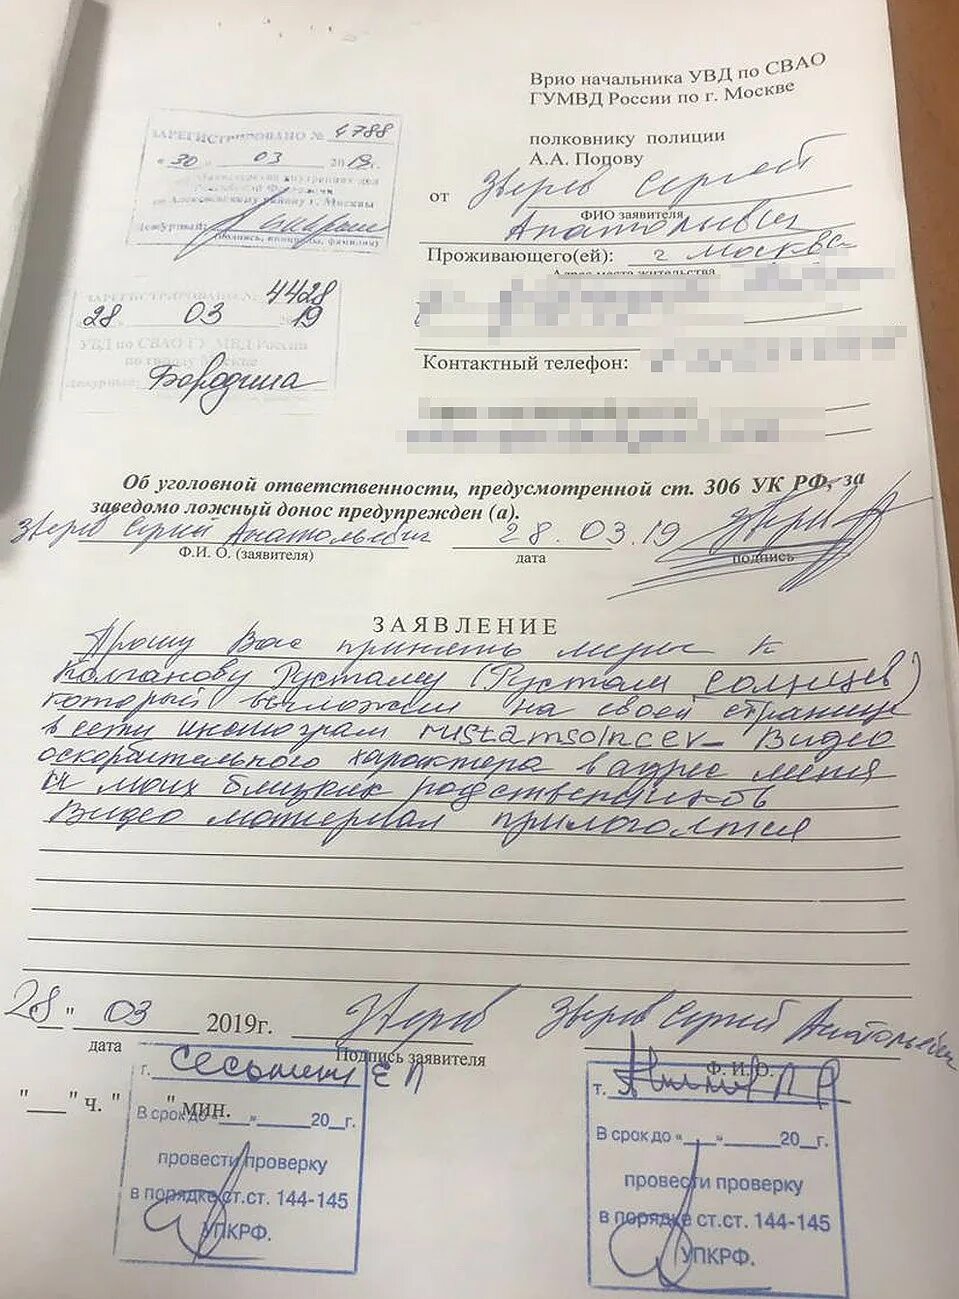 Врио начальника УВД по СВАО
ГУМВД России по г. Москве
полковнику полиции
А.А. Попову
от Зверев Сергей
ФИО заявителя
Анатольевич
Проживающего(ей): г Москва
Адрес места жительства
Контактный телефон:
ЗАРЕГИСТРИРОВАНО № 4788
"30" 03 2019г.
Министерство внутренних дел
Российской Федерации
по Алексеевскому району г. Москвы
Дежурный:
(подпись, инициалы, фамилия)
ЗАРЕГИСТРИРОВАНО № 4428
28 03 19
УВД по СВАО ГУ МВД России
по городу Москве
дежурный: Бородина
Об уголовной ответственности, предусмотренной ст. 306 УК РФ, за
заведомо ложный донос предупрежден (а).
Зверев Сергей Анатольевич 28.03.19 Зверев
Ф.И.О. (заявителя) дата подпись
ЗАЯВЛЕНИЕ
Прошу Вас принять меры к
Колганову Рустаму (Рустам Солнцев)
который выложил на своей странице
в сети инстограм rustamsolncev_ Видео
оскорбительного характера в адрес меня
и моих близких родственников
Видео матерьял прилогаются
28 " 03 2019г. Зверев Зверев Сергей Анатольевич
дата Подпись заявителя Ф.И.О.
"___" ч. " " мин.
г.
В срок до «__»____20_г.
провести проверку
в порядке ст.ст. 144-145
УПКРФ.
т.
В срок до «__»____20_г.
провести проверку
в порядке ст.ст. 144-145
УПКРФ.